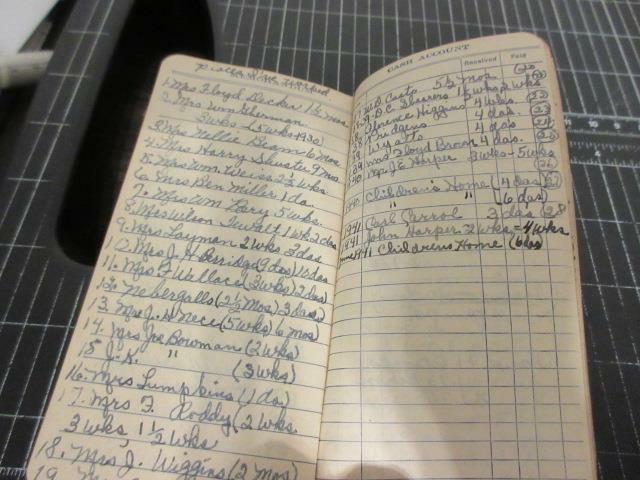 Places I've Worked
1. Mrs Floyd Decker 1½ mos.
2. Mrs Wm Sherman
3 wks (5 wks 1930)
3. Mrs Nellie Beam 6 mos
4. Mrs Harry Shuster 9 mos.
5. Mrs Wm. Weiss 2½ wks
6. Mrs Ben Miller 1 da.
7. Mrs Wm Lary 5 wks.
8. Mrs Wilson 1 wk 2 das
9. Mrs Layman 2 wks 3 das
10. Mrs J. H. Berridge (9 das) 10 das
11. Mrs F Wallace (3 wks) 2 das)
12. Nebergalls (2½ mos) 3 das
13. Mrs J. H Nece (5 wks) 6 mos)
14. Mrs Joe Bowman (2 wks)
15 J. K. " (3 wks)
16. Mrs Lumpkins (1 da)
17. Mrs F. Roddy (2 wks.
3 wks 1½ wks
18. Mrs J. Wiggins (2 mos)
19. Mrs
CASH ACCOUNT
Received Paid
Casto 5½ mos (20
D.C. Shearers 1½ wks 2 wks
38 Florence Higgins 4 wks. (22
38 Pridgens 4 das. (23
39 Wyatts 4 das (24
39 Mrs Floyd Brown 4 das. (25
1940 Mrs J E Harper 3 wks - 5 wks
(26
1940. Children's Home (4 das) (27
" " (6 das)
1941 Carl Carrol 3 das (28
1941 John Harper 2 wks = 4 wks
1941 Childrens Home (6 das)